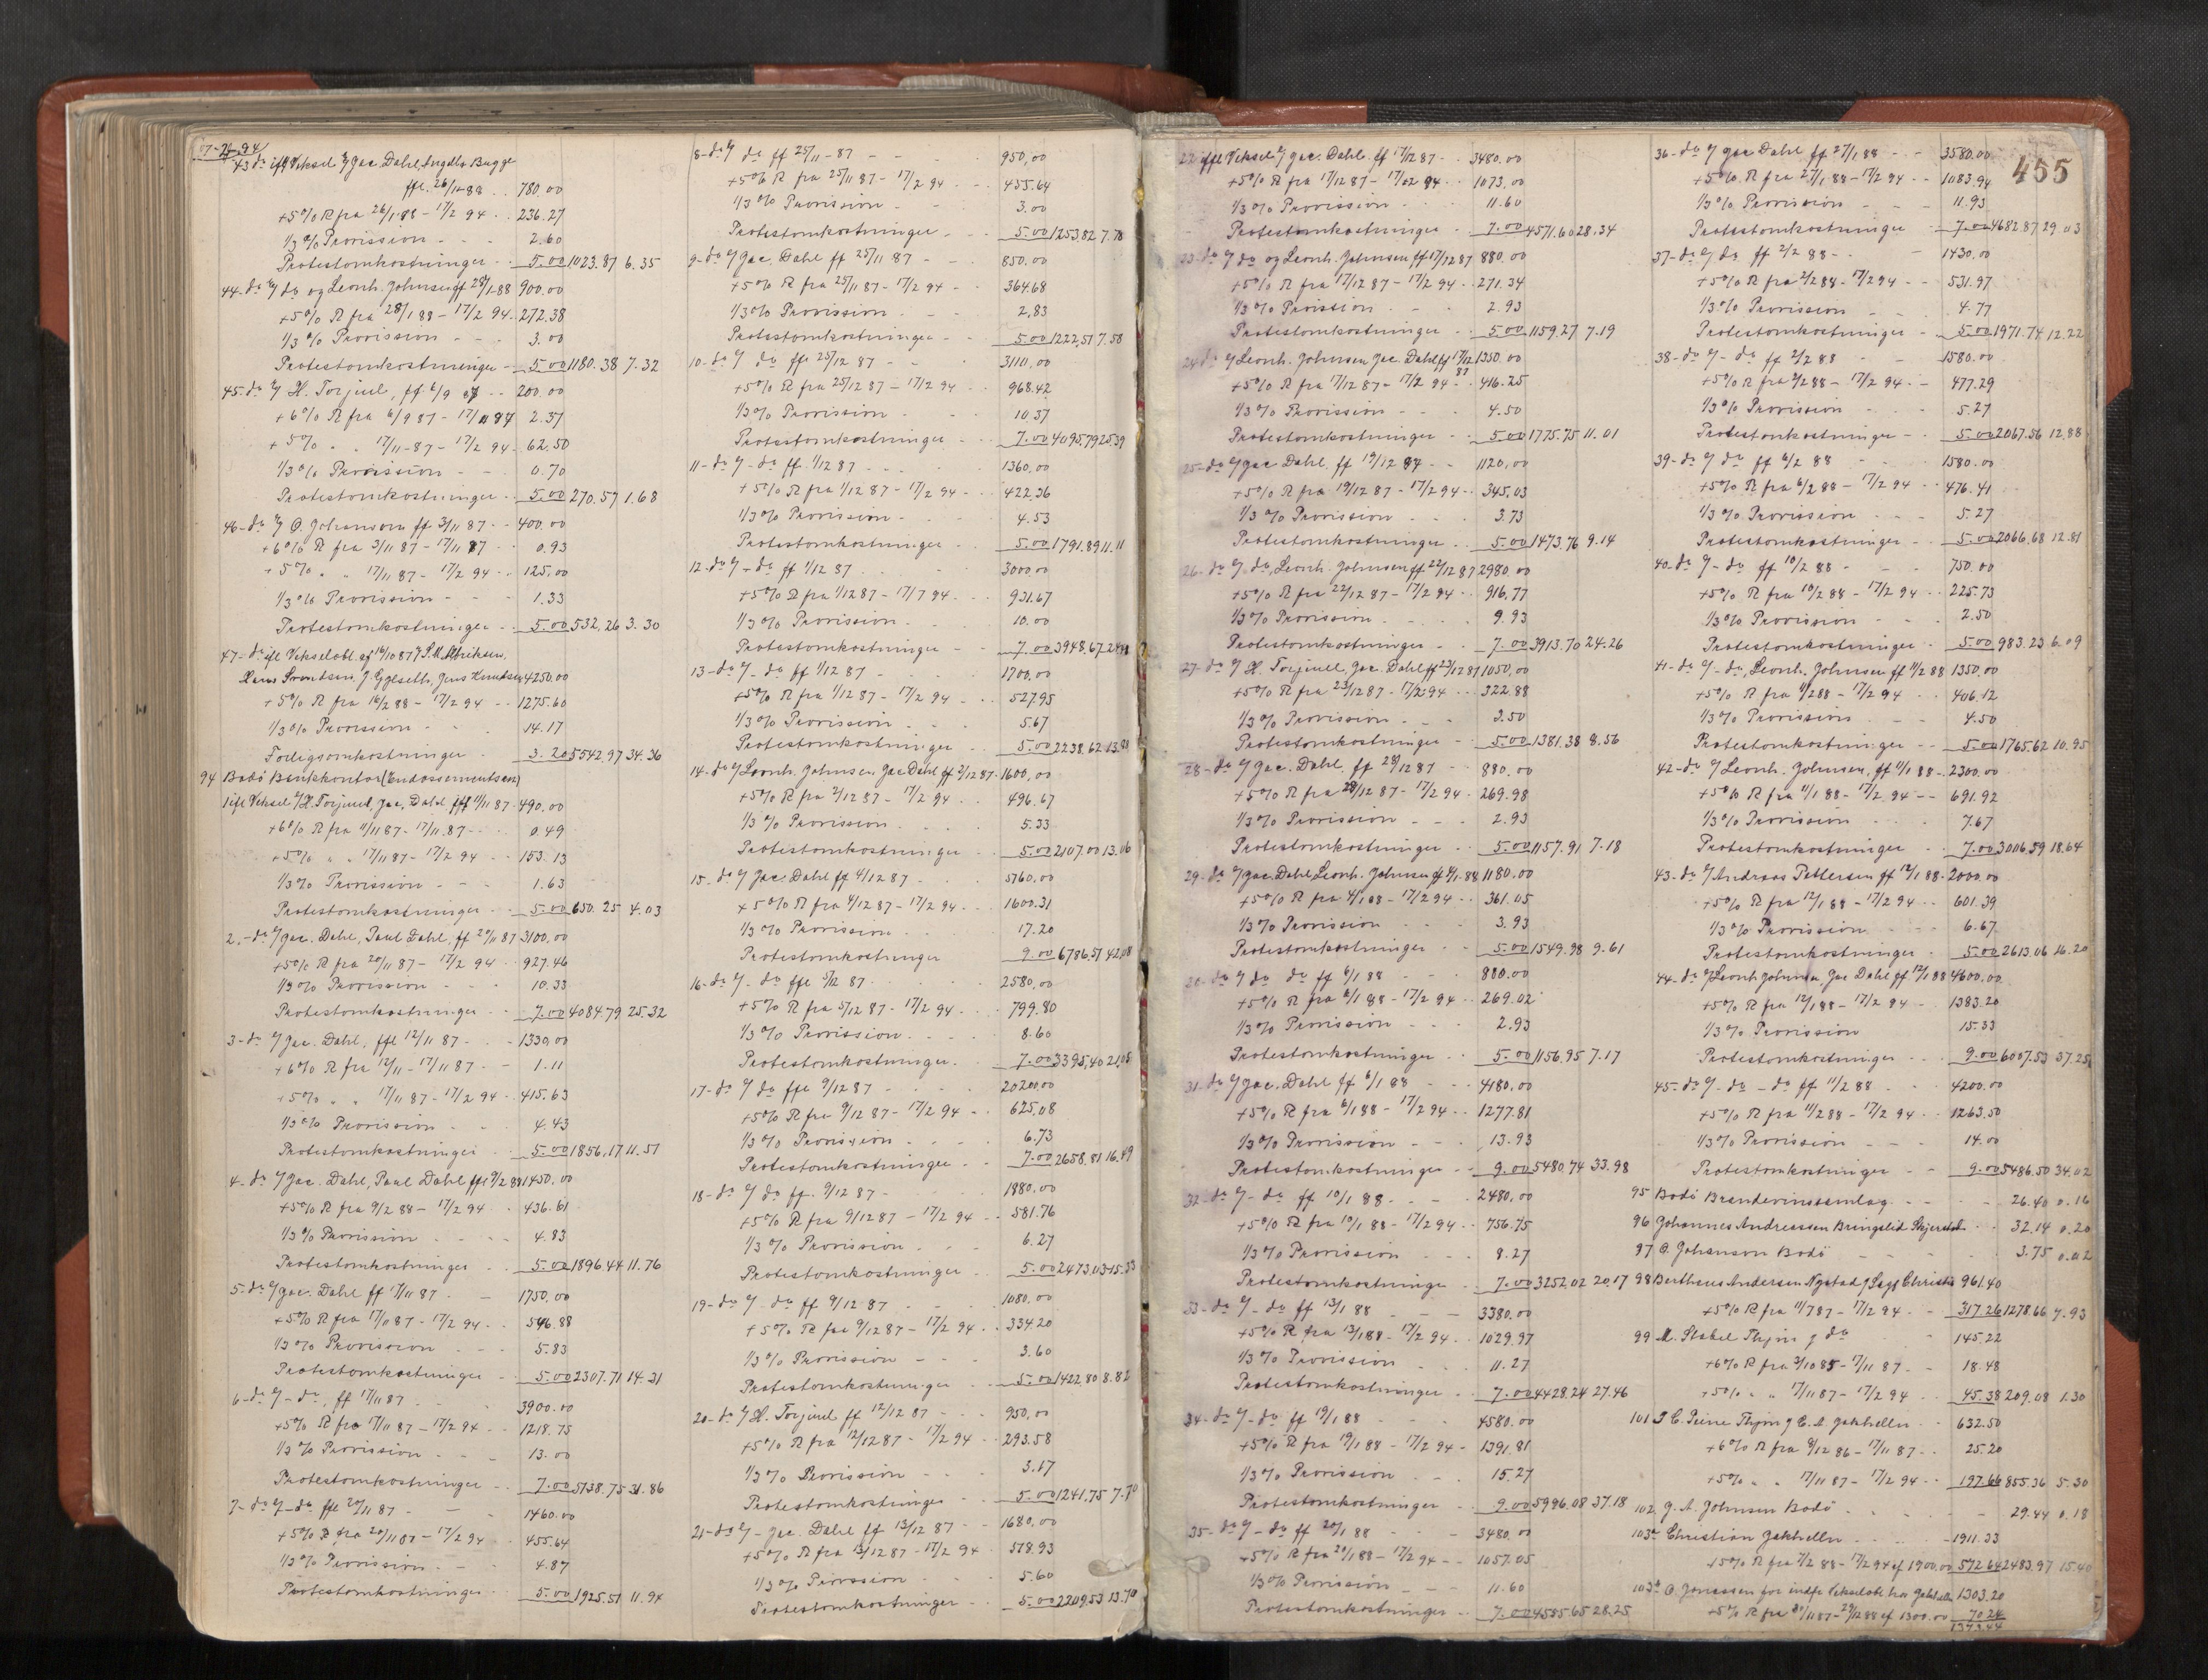 07-26.94
43 do ifl Veksel %. Jac. Dahl, Ingeb. Bugge
ffl. 26/1-88 .. 780.00
+5% R fra 26/1-88 - 17/2 94 .. 236.27
1/3 % Provission - - - 2.60
Protestomkostninger - 5.00 1023.87 6.35
44- do %. do og Leonh. Johnsen ff 28/1-88 900.00
+5% R fra 28/1 88 - 17/2 94 - 272.38
1/3 % Provission - - - 3.00
Protestomkostninger - 5.00 1180.38 7.32
45- do %. H. Torjuul, ff 6/9 87 - - 200.00
+6% R fra 6/9 87 - 17/11 87 2.37
+5% " " 17/11-87 - 17/2 94 - 62.50
1/3 % Provission - - - 0.70
Protestomkostninger - - 5.00 270.57 1.68
46- do %. O. Johanson ff 3/11 87 - - 400.00
+6% R fra 3/11 87 - 17/11 87 .. 0.93
+5% " " 17/11 87 - 17/2 94 .. 125.00
1/3 % Provission - - - 1.33
Protestomkostninger - - 5.00 532,26 3.30
47- do ifl Vekselobl. af 16/10 87
4250.00
+5% R fra 16/2 88 - 17/2 94 - - 1275.60
1/3 % Provission - - 14.17
3.20 5542.97 34.36
94 Bodö Bankkontor (Endossementsen)
1 ifl Veksel %. H. Torjuul, Jac. Dahl ffl 11/11 87 - 490.00
+6% R fra 11/11 87 - 17/11.87 - - 0.49
+5% " " 17/11 87 - 17/2 94 - - 153.13
1/3 % Provission - - - 1.63
Protestomkostninger - - 5.00 650.25 4.03
2.- do %. Jac. Dahl, Paul Dahl, ff 20/11 87 3100.00
+5% R fra 20/11 87 - 17/2 94 .. 927.46
1/3 % Provission - - - 10.33
Protestomkostninger - - 7.00 4084.79 25.32
3- do %. Jac. Dahl, ffl 12/11 87 - - 1330.00
+6% R fra 12/11 - 17/11 87 - 1.11
+5% " " 17/11 87 - 17/2 94 - 415.63
1/3 % Provission - - 4.43
Protestomkostninger - - 5.00 1856,17 11.51
4- do %. Jac. Dahl, Paul Dahl ffl 9/2 88 1450.00
+5% R fra 9/2 88 - 17/2 94 - 436.61
1/3 % Provission - - - 4.83
Protestomkostninger - - 5.00 1896.44 11.76
5- do %. Jac. Dahl ff 17/11 87 - - 1750.00
+5% R fra 17/11 87 - 17/2 94 - - 546.88
1/3 % Provission - - - 5.83
Protestomkostninger - 5.00 2307.71 14.31
6- do %. - do, ff 17/11 87 - - 3900.00
+5% R fra 17/11 87 - 17/2 94 - - 1218.75
1/3 % Provission - - - 13.00
Protestomkostninger - - 7.00 5138.75 31.86
7- do %. - do ffl 20/11 87 - - 1460.00
+5% R fra 20/11 87 - 17/2 94 455.64
1/3 % Provission - - - 4.87
Protestomkostninger - - 5.00 1925.51 11.94
8- do %. do ff 25/11 - 87 - - 950,00
+5% R fra 25/11 87 - 17/2 94 - - 455.64
1/3 % Provission - - 3.00
Protestomkostninger - - 5.00 1253,82 7.78
9- do %. Jac. Dahl ff 25/11 87 - - 850.00
+5% R fra 25/11 87 - 17/2 94 - - 364.68
1/3 % Provission - - 2.83
Protestomkostninger - - 5.00 1222,51 7.58
10- do %. do ffl 25/12 87 - - 3110,00
+5% R fra 25/12 87 - 17/2 94 - - 968.42
1/3 % Provission - - 10.37
Protestomkostninger - - 7.00 4095,79 25.39
11- do %. - do ff. 1/12 87 - - - 1360.00
+5% R fra 1/12 87 - 17/2 94 - - 422,36
1/3 % Provission - - 4.53
Protestomkostninger - - 5.00 1791.89 11.11
12- do %. - do ff 1/12 87 - - 3000.00
+5% R fra 1/12 87 - 17/7 94 - - - 931.67
1/3 % Provission - - - 10.00
Protestomkostninger - - 7.00 3948,67 24.48
13- do %. - do ff 1/12 87 - - 1700.00
+5% R fra 1/12 87 - 17/2 94 - - 527.95
1/3 % Provission - - - 5.67
Protestomkostninger - - 5.00 2238,62 13.88
14- do %. Leonh. Johnsen Jac Dahl ff 2/12 87 - 1600,00
+5% R fra 2/12 87 - 17/2 94 - - 496.67
1/3 % Provission - - - 5.33
Protestomkostninger - - 5.00 2107.00 13.06
15- do %. Jac. Dahl ff 4/12 87 - - 5160.00
+5% R fra 4/12 87 - 17/2 94 - - - 1600.31
1/3 % Provission - - - 17.20
Protestomkostninger 9.00 6786,51 42,08
16- do %. - do ffl 5/12 87 - - - 2580,00
+5% R fra 5/12 87 - 17/2 94 - - - 799.80
1/3 % Provission - - - - 8.60
Protestomkostninger - - 7.00 3395,40 21,05
17- do %. do ffl 9/12 87 - - - 2020,00
+5% R fra 9/12 87 - 17/2 94 - - 625.08
1/3 % Provission - - - - 6.73
Protestomkostninger - - 7.00 2658.81 16.49
18- do %. do ff. 9/12 87 - - - 1880.00
+5% R fra 9/12 87 - 17/2 94 - - 581.76
1/3 % Provission - - - 6.27
Protestomkostninger - - 5.00 2473.03 15.33
19- do %. - do ff 9/12 87 - - - 1080.00
+5% R fra 9/12 87 - 17/2 94 - - 334.20
1/3 % Provission - - - 3.60
Protestomkostninger - - 5.00 1422,80 8.82
20- do %. H. Torjuul ff 12/12 87 - - - 950,00
+5% R fra 12/12 87 - 17/2 94 - - 293.58
1/3 % Provission - - - 3.17
Protestomkostninger - - 5.00 1241,75 7.70
21- do %. - Jac. Dahl ff 13/12 87 - - 1680,00
+5% R fra 13/12 87 - 17/2 94 - 518.93
1/3 % Provission - - - 5.60
Protestomkostninger - - 5.00 2209.53 13.70
22 iffl Veksel %. Jac. Dahl. ff 17/12 87 - - 3480.00
+5% R fra 17/12 87 - 17/2 94 - - 1073.00
1/3 % Provission - - - 11.60
Protestomkostninger - 7.00 4571.60 28.34
23- do %. do og Leonh. Johnsen ff 17/12 87 880.00
+5% R fra 17/12 87 - 17/2 94 - - 271.34
1/3 % Provission - - - 2.93
Protestomkostninger - - 5.00 1159.27 7.19
24 do %. Leonh. Johnsen Jac Dahl ff 17/12 87 1350.00
+5% R fra 17/12 87 - 17/2 94 - - 416.25
1/3 % Provission - - - 4.50
Protestomkostninger - - 5.00 1775.75 11.01
25- do %. Jac Dahl. ff 19/12 87 - - 1120,00
+5% R fra 19/12 87 - 17/2 94 - - 345.03
1/3 % Provission - - - 3.73
Protestomkostninger - - 5.00 1473.76 9.14
26- do %. do, Leonh. Johnsen ff 22/12 87 2980.00
+5% R fra 22/12 87 - 17/2 94 - - 916.77
1/3 % Provission - - - 9.93
Protestomkostninger - - 7.00 3913.70 24.26
27- do %. H. Torjuul, Jac. Dahl ff 23/12 87 1050,00
+5% R fra 23/12 87 - 17/2 94 - - 322.88
1/3 % Provission - - - 3.50
Protestomkostninger - - 5.00 1381.38 8.56
28- do %. Jac. Dahl, ff 28/12 87 - - 880.00
+5% R fra 28/12 87 - 17/2 94 - 269.98
1/3 % Provission - - - 2.93
Protestomkostninger - - 5.00 1157.91 7.18
29- do %. Jac Dahl Leonh. Johnsen ff 4/1-88 1180.00
+5% R fra 4/1 88 - 17/2 94 - - 361.05
1/3 % Provission - - - 3.93
Protestomkostninger - - 5.00 1549.98 9.61
30- do %. do do ff 6/1 88 - - - 880.00
+5% R fra 6/1 88 - 17/2 94 - - 269.02
1/3 % Provission - - - 2.93
Protestomkostninger - - 5.00 1156.95 7.17
31- do %. Jac. Dahl ff 6/1 88 - - - 4180,00
+5% R fra 6/1 88 - 17/2 94 - - 1277.81
1/3 % Provission - - - 13.93
Protestomkostninger - - 9.00 5480.74 33.98
32- do %. - do ff 10/1 88 - - - 2480,00
+5% R fra 10/1 88 - 17/2 94 - - 756.75
1/3 % Provission - - - 8.27
Protestomkostninge - - 7.00 3252.02 20.17
33- do %. - do ff 13/1 88 - - - 3380.00
+5% R fra 13/1 88 - 17/2 94 - - 1029.97
1/3 % Provission - - - 11.27
Protestomkostninger - - 7.00 4428.24 27.46
34- do %. - do ff 19/1 88 - - - 4580.00
+5% R fra 19/1 88 - 17/2 94 - - 1391.81
1/3 % Provission - - - 15.27
Protestomkostninger - - 9.00 5996.08 37.18
35- do %. - do ff 20/1 88 - - - 3480.00
+5% R fra 20/1 88 - 17/2 94 - - 1057.05
1/3 % Provission - - - 11.60
Protestomkostninger - - 7.00 4555.65 28.25
455
36- do %. Jac Dahl ff 27/1 88 - - 3580.00
+5% R fra 27/1 88 - 17/2 94 - - 1083.94
1/3 % Provission - - - 11.93
Protestomkostninger - 7.00 4682.87 29.03
37- do %. do ff 2/2 88 - - 1430.00
+5% R fra 2/2 88 - 17/2 94 - - 531.97
1/3 % Provission - - - 4.77
Protestomkostninger - 5.00 1971.74 12.22
38- do %. - do ff 2/2 88 - - 1580.00
+5% R fra 2/2 88 - 17/2 94 - - 477.29
1/3 % Provission - - - 5.27
Protestomkostninger - - 5.00 2067.56 12.88
39- do %. do ff 6/2 88 - - 1580.00
+5% R fra 6/2 88 - 17/2 94 - - 476.41
1/3 % Provission - - - 5.27
Protestomkostninger - - 5.00 2066.68 12.81
40- do %. - do ff 10/2 88 - - - 750.00
+5% R fra 10/2 88 - 17/2 94 - - 225.73
1/3 % Provission - - - 2.50
Protestomkostninger - - 5.00 983.23 6.09
41- do %. - do, Leonh. Johnsen ff 11/2 88 1350.00
+5% R fra 11/2 88 - 17/2 94 - - 406.12
1/3 % Provission - - - 4.50
Protestomkostninger - - 5.00 1765.62 10.95
42- do %. Leonh. Johnsen, ff 11/1 88 - 2300.00
+5% R fra 11/1 88 - 17/2 94 - - 691.92
1/3 % Provission - - - 7.67
Protestomkostninger - - 7.00 3006.59 18.64
43- do %. Andreas Pettersen ff 12/1 88 - 2000.00
+5% R fra 12/1 88 - 17/2 94 - - 601.39
1/3 % Provission - - - 6.67
Protestomkostninger - - 5.00 2613.06 16.20
44- do %. Leonh Johnsen, Jac Dahl ff 12/1 88 4600.00
+5% R fra 12/1 88 - 17/2 94 - 1383.20
1/3 % Provission 15.33
Protestomkostninger - - - 9.00 6007.53 37.25
45- do %. - do - do ff 11/2 88 - - 4200.00
+5% R fra 11/2 88 - 17/2 94 - - 1263.50
1/3 % Provission - - - 14.00
Protestomkostninger - - 9.00 5486.50 34.02
95 Bodö Brændevinssamlag - - - - 26.40 0.16
96 Johannes Andreassen Bringslid Skjerstad - - 32.14 0.20
97 O. Johanson Bodö - - - - 3.75 0.02
98 Bertheus Andersen Nystad 961.40
+5% R fra 11/7 87 - 17/2 94 - - 317.26 1278.66 7.93
99 M. Stabel Thjem 145.22
+6% R fra 2/10 85 - 17/11 87 - - 18.48
+5% " " 17/11 87 - 17/2 94 - - 45.38 209.08 1.30
101 632.50
+6% R fra 9/12 86 - 17/11 87 - - 25.20
+5% " " 17/11 87 - 17/2 94 - - 197.66 855.36 5.30
102 J. A. Johnsen Bodö - - - - 29.44 0.18
103a Christian Jakhelln - - - 1911.33
+5% R fra 7/2 88 - 17/2 94 af 1900,00 572.64 2483.97 15.40
103b O. Jonassen for indfr. Vekselobl. hos Jakhelln 1303.20
+5% R fra 30/11 87 - 29/12 88 af 1300.00 70.24
1373.44